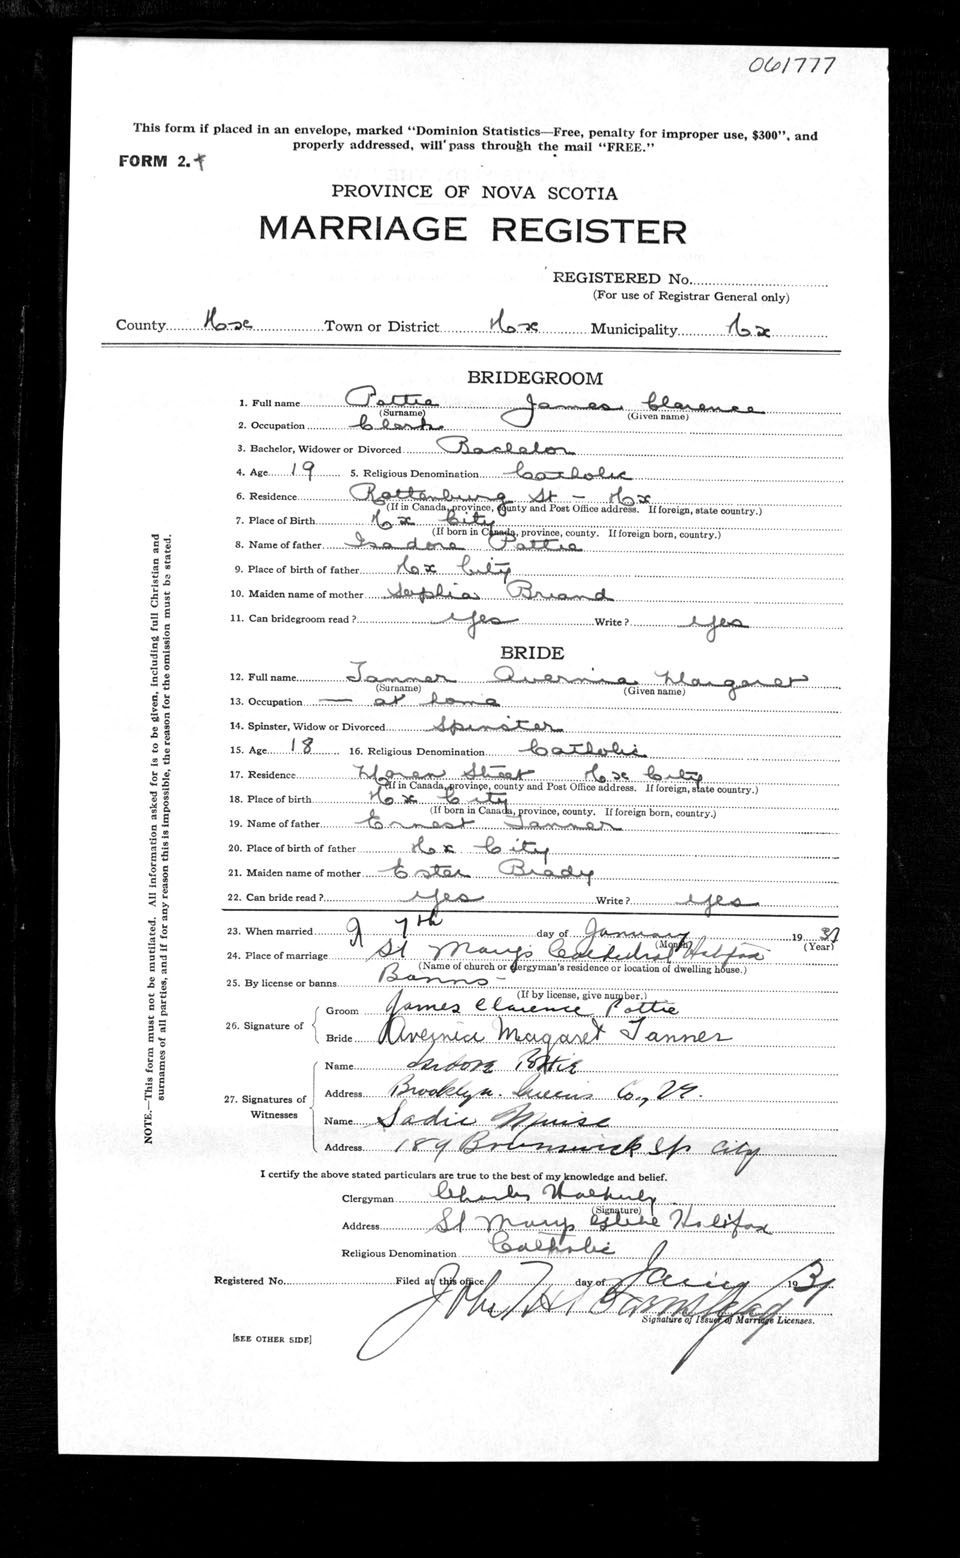 061777
This form if placed in an envelope, marked "Dominion Statistics—Free, penalty for improper use, $300", and
properly addressed, will pass through the mail "FREE."
FORM 2.
PROVINCE OF NOVA SCOTIA
MARRIAGE REGISTER
REGISTERED No.
(For use of Registrar General only)
County Hx Town or District Hx Municipality Hx
BRIDEGROOM
1. Full name Pottie James Clarence
(Surname) (Given name)
2. Occupation Clerk
3. Bachelor, Widower or Divorced Bachelor
4. Age 19 5. Religious Denomination Catholic
6. Residence Rottenburg St - Hx
(If in Canada, province, county and Post Office address. If foreign, state country.)
7. Place of Birth Hx City
(If born in Canada, province, county. If foreign born, country.)
8. Name of father Isadore Pottie
9. Place of birth of father Hx City
10. Maiden name of mother Sophia Briand
11. Can bridegroom read? Yes Write? Yes
BRIDE
12. Full name Tanner Avernia Margaret
(Surname) (Given name)
13. Occupation — at home
14. Spinster, Widow or Divorced Spinster
15. Age 18 16. Religious Denomination Catholic
17. Residence Moren Street Hx City
(If in Canada, province, county and Post Office address. If foreign, state country.)
18. Place of birth Hx City
(If born in Canada, province, county. If foreign born, country.)
19. Name of father Ernest Tanner
20. Place of birth of father Hx City
21. Maiden name of mother Ester Brady
22. Can bride read? Yes Write? Yes
23. When married 7th day of January 19
(Month) (Year)
24. Place of marriage St Mary's Cathedral Halifax
(Name of church or clergyman's residence or location of dwelling house.)
25. By license or banns Banns -
(If by license, give number.)
26. Signature of
Groom James Clarence Pottie
Bride Avernia Margaret Tanner
27. Signatures of Witnesses
Name Pottie
Address Brooklyn. Queens Co., NS.
Name Sadie Muise
Address 189 Brunswick St. City
I certify the above stated particulars are true to the best of my knowledge and belief.
Clergyman Charles
(Signature)
Address St Mary's Glebe Halifax
Religious Denomination Catholic
Registered No. Filed at this office day of 19
John
Signature of Issuer of Marriage Licenses.
[SEE OTHER SIDE]
NOTE.—This form must not be mutilated. All information asked for is to be given, including full Christian and
surnames of all parties, and if for any reason this is impossible, the reason for the omission must be stated.